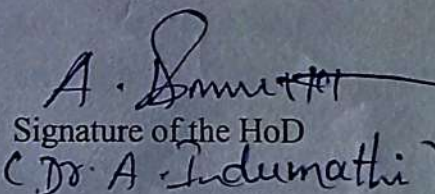 A.
Signature of the HoD
(Dr. A. Indumathi